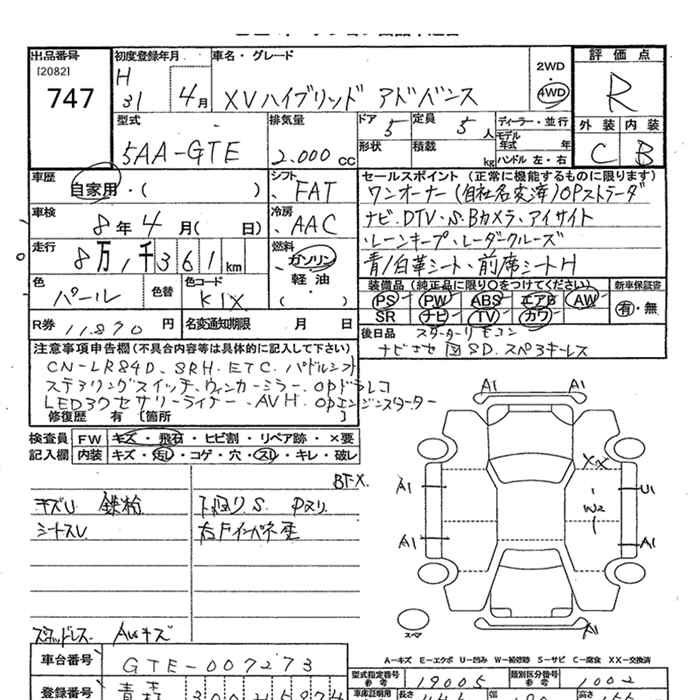 出品番号
[2082]
747
初度登録年月
H
31
4月
車名・グレード
XVハイブリッド アドバンス
2WD
4WD
評価点
R
型式
5AA-GTE
排気量
2.000 CC
ドア
5
定員
5人
形状
積載
kg
ディーラー・並行
モデル
年式 年
ハンドル 左・右
外装 内装
C B
車歴
自家用・( )
シフト
FAT
セールスポイント (正常に機能するものに限ります)
ワンオーナー(自社名変済)OPストラーダ
ナビ.DTV・S.Bカメラ・アイサイト
レーンキープ・レーダークルーズ
青/白革シート、前席シートH
車検
8年4月( 日)
冷房
AAC
走行
8万1千361km
燃料
ガソリン
軽油
( )
色
パール
色替
色コード
K1X
装備品 (純正品に限り○をつけてください)
PS PW ABS エアB AW
SR ナビ TV カワ
新車保証書
有・無
R券 11.870円
名変通知期限 月 日
後日品 スターターリモコン
注意事項申告欄(不具合内容等は具体的に記入して下さい)
CN-LR84D、SRH.ETC.パドルシフト
ステアリングスイッチ、ウィンカーミラー.OPドラレコ
LEDアクセサリーライナー、AVH.OPエンジンスターター
修復歴 有 [箇所 ]
検査員
記入欄
FW キズ・飛石・ヒビ割・リペア跡・×要
内装 キズ・汚レ・コゲ・穴・スレ・キレ・破レ
キズU 鉄粉
シートスレ
A1
A1
A1
A1
XX
W2
U1
A1
A1
スペア
スタッドレス AWキズ
A-キズ E-エクボ U-凹み W-補修跡 S-サビ C-腐食 XX-交換済
車台番号
GTE-007273
型式指定番号
参考
19005
類別区分番号
参考
1002
登録番号
青森
車庫証明用
長さ